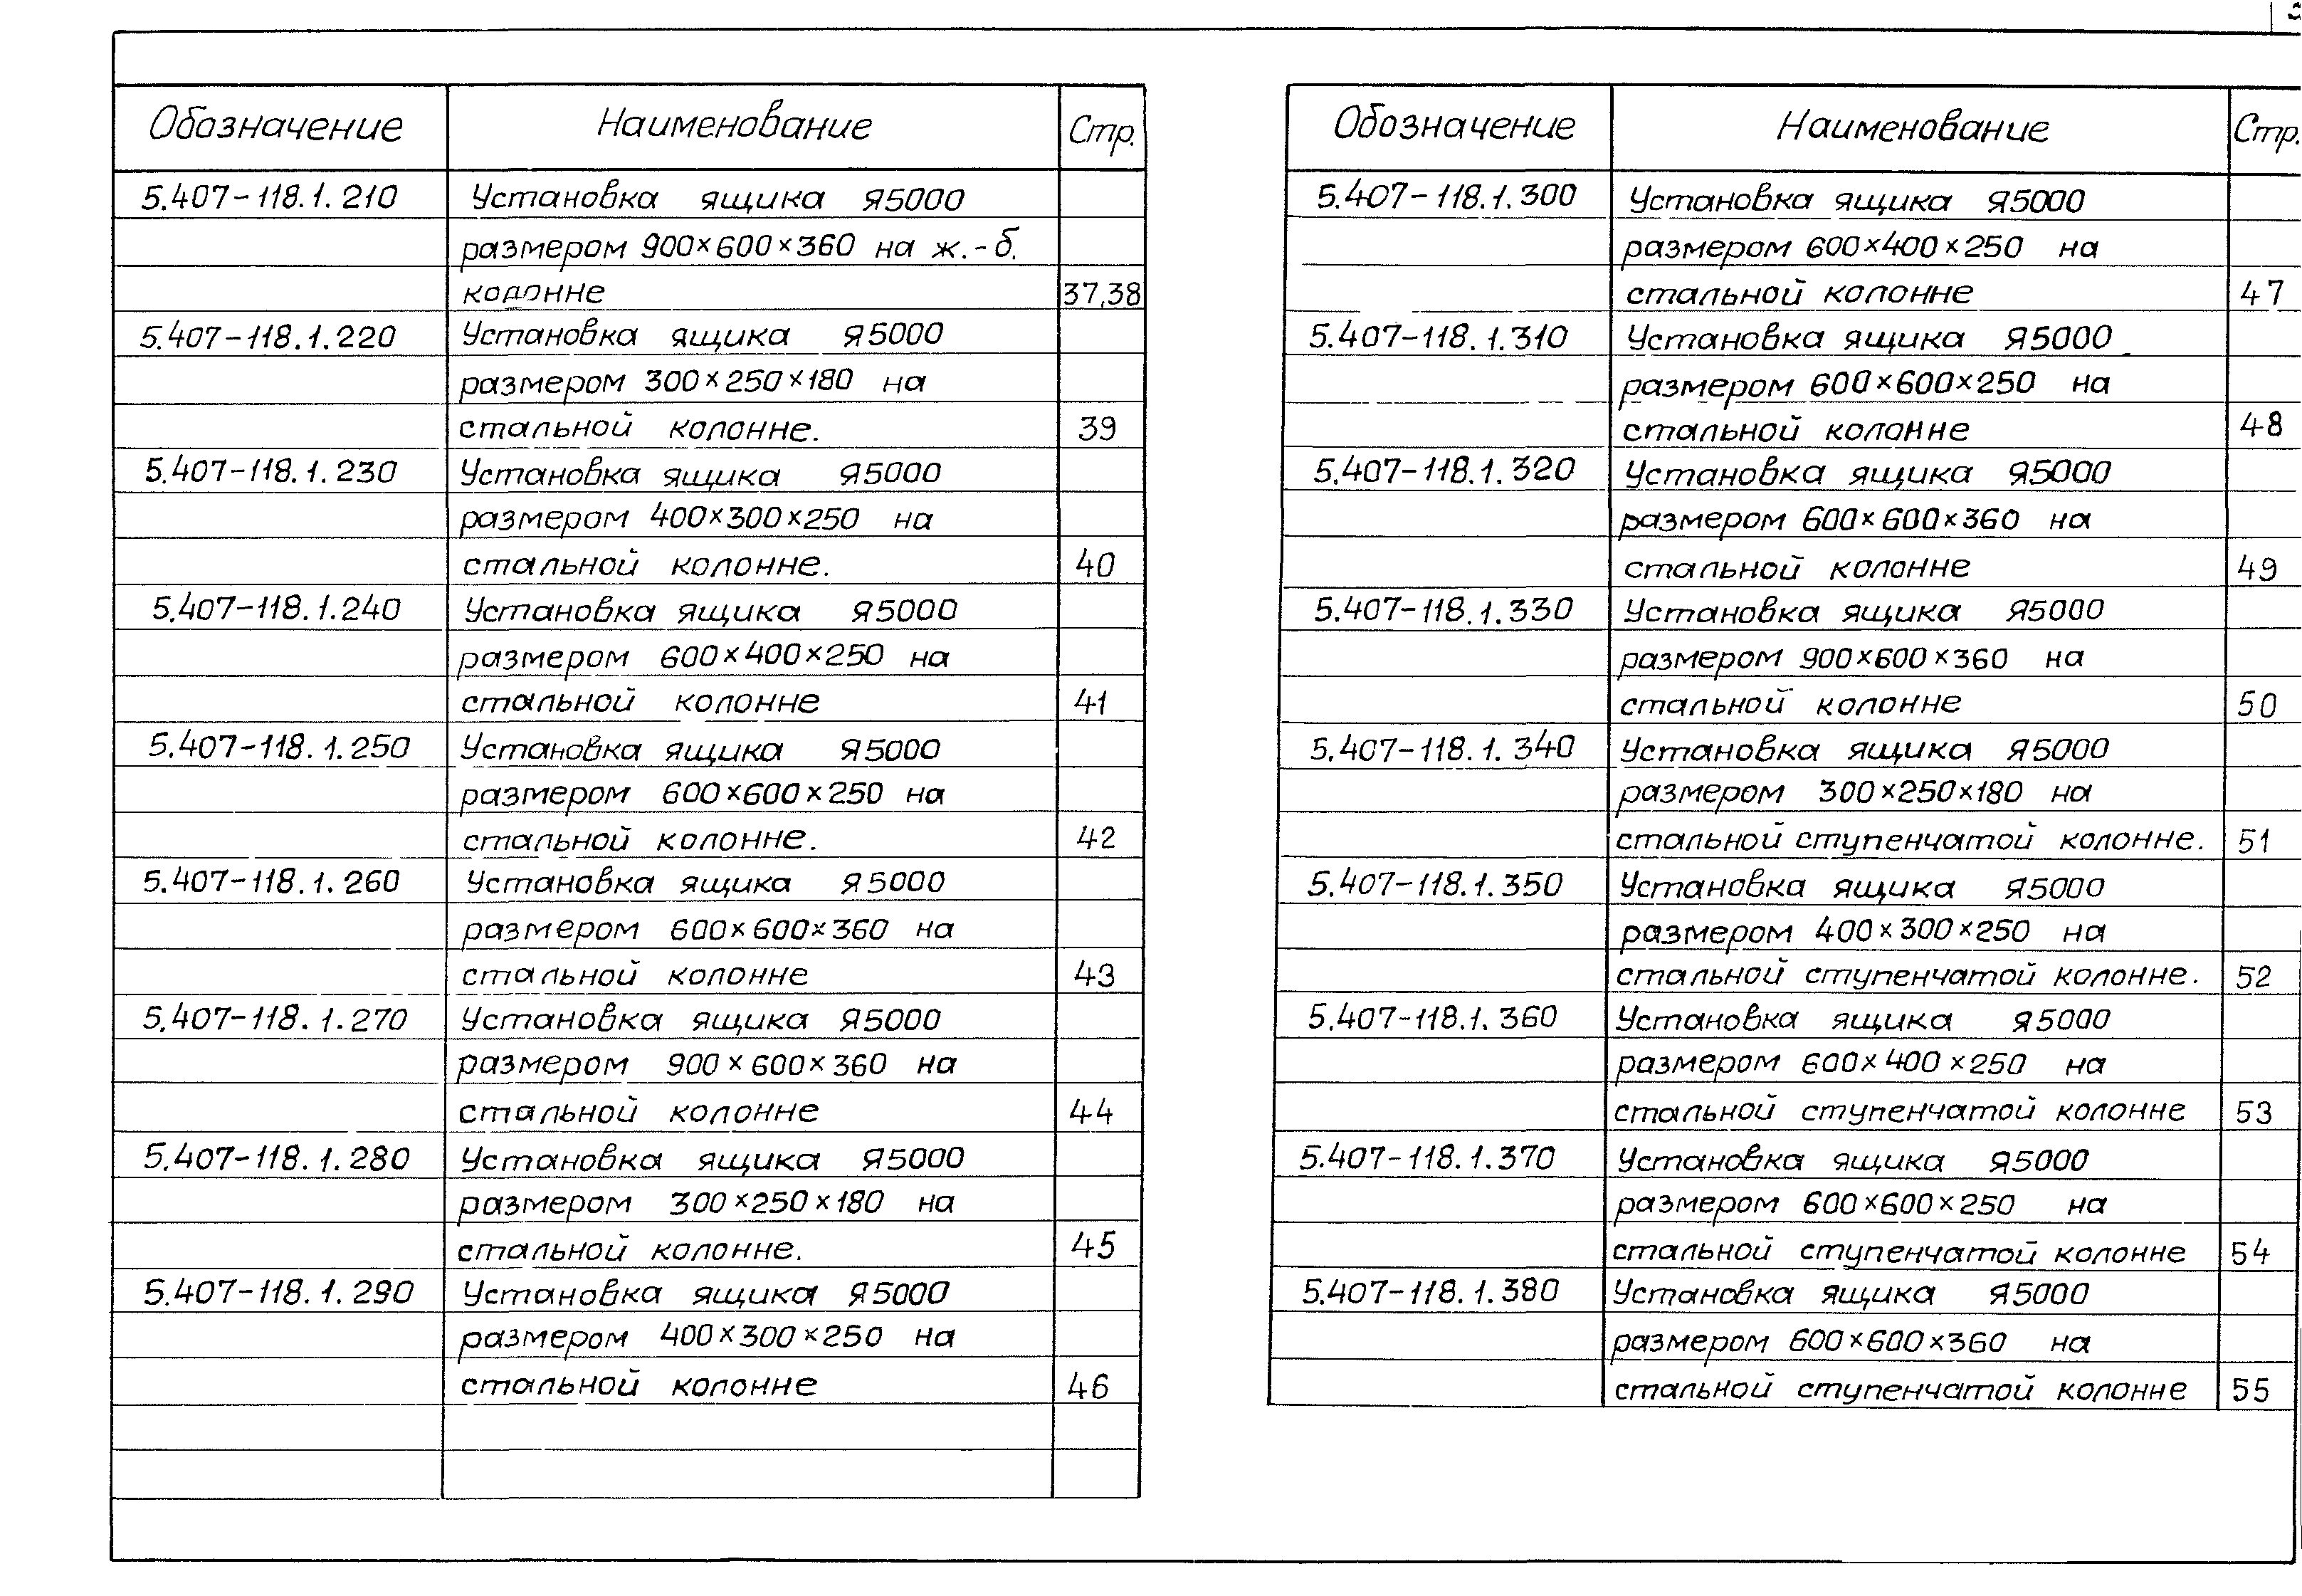 Обозначение Наименование Стр.
5.407-118.1.210 Установка ящика Я5000
размером 900×600×360 на ж.-б.
колонне 37,38
5.407-118.1.220 Установка ящика Я5000
размером 300×250×180 на
стальной колонне. 39
5.407-118.1.230 Установка ящика Я5000
размером 400×300×250 на
стальной колонне. 40
5.407-118.1.240 Установка ящика Я5000
размером 600×400×250 на
стальной колонне 41
5.407-118.1.250 Установка ящика Я5000
размером 600×600×250 на
стальной колонне. 42
5.407-118.1.260 Установка ящика Я5000
размером 600×600×360 на
стальной колонне 43
5.407-118.1.270 Установка ящика Я5000
размером 900×600×360 на
стальной колонне 44
5.407-118.1.280 Установка ящика Я5000
размером 300×250×180 на
стальной колонне. 45
5.407-118.1.290 Установка ящика Я5000
размером 400×300×250 на
стальной колонне 46
Обозначение Наименование Стр.
5.407-118.1.300 Установка ящика Я5000
размером 600×400×250 на
стальной колонне 47
5.407-118.1.310 Установка ящика Я5000
размером 600×600×250 на
стальной колонне 48
5.407-118.1.320 Установка ящика Я5000
размером 600×600×360 на
стальной колонне 49
5.407-118.1.330 Установка ящика Я5000
размером 900×600×360 на
стальной колонне 50
5.407-118.1.340 Установка ящика Я5000
размером 300×250×180 на
стальной ступенчатой колонне. 51
5.407-118.1.350 Установка ящика Я5000
размером 400×300×250 на
стальной ступенчатой колонне. 52
5.407-118.1.360 Установка ящика Я5000
размером 600×400×250 на
стальной ступенчатой колонне 53
5.407-118.1.370 Установка ящика Я5000
размером 600×600×250 на
стальной ступенчатой колонне 54
5.407-118.1.380 Установка ящика Я5000
размером 600×600×360 на
стальной ступенчатой колонне 55